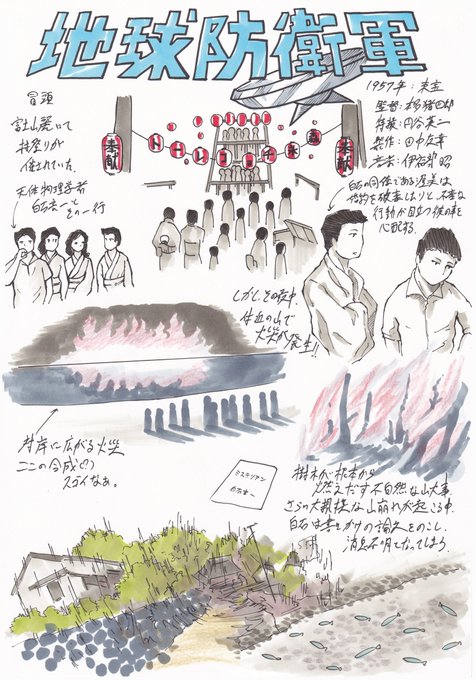 地球防衛軍
冒頭
富士山麓にて
村祭りが
催されていた。
天体物理学者
白石亮一と
その一行
1957年：東宝
監督：本多猪四郎
特技：円谷英二
製作：田中友幸
音楽：伊福部昭
奉献
奉献
白石の同僚である渥美は、
婚約を破棄したりと、不審な
行動が目立つ彼の事を
心配する。
しかしその夜中、
付近の山で
火災が発生!!
対岸に広がる火災
ここの合成(?)
スゴイなぁ。
ミステリアン
白石亮一
樹木が根本から
燃えだす不自然な山火事
さらの大規模な山崩れが起こる中、
白石は書きかけの論文をのこし、
消息不明となってしまう。